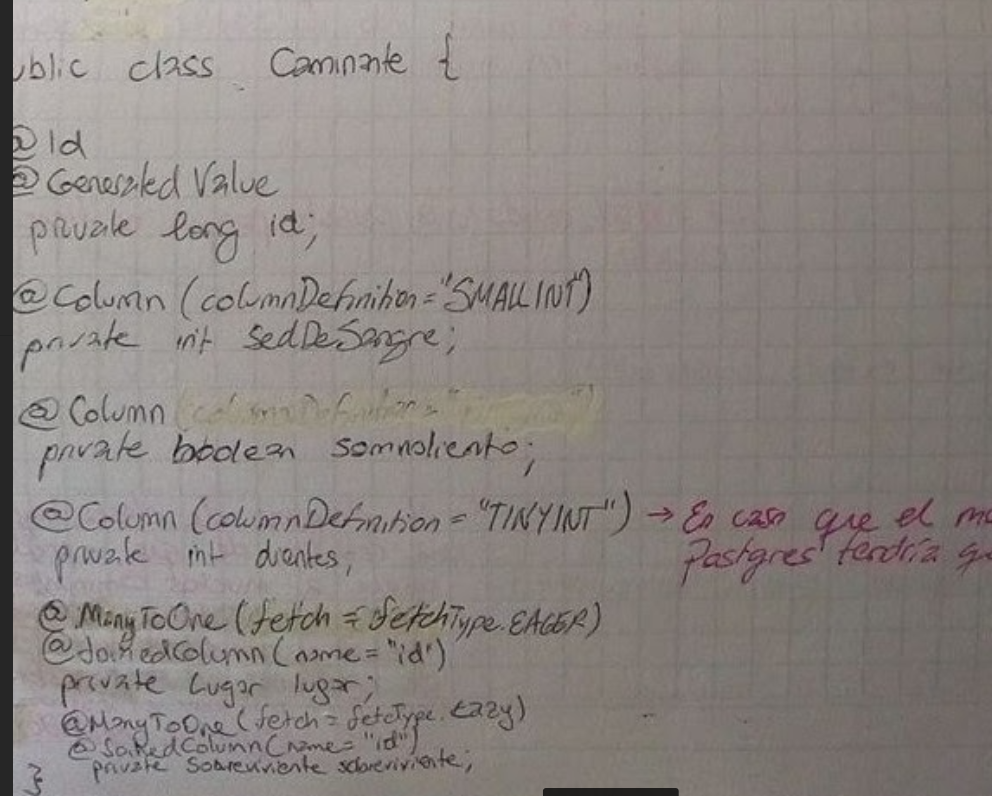 ublic class Caminante {
@Id
@Generated Value
private long id;
@Column (columnDefinition="SMALLINT")
private int sedDeSangre;
@Column (columnDefinition="
private boolean somnoliento;
@Column (columnDefinition = "TINYINT") → En caso que el mo
private int dientes; Postgres tendría q
@ManyToOne (fetch = fetchType.EAGER)
@JoinedColumn (name="id")
private Lugar lugar;
@ManyToOne (fetch = fetcType.Lazy)
@JoinedColumn (name="id")
private Sobreviviente sobreviviente;
}